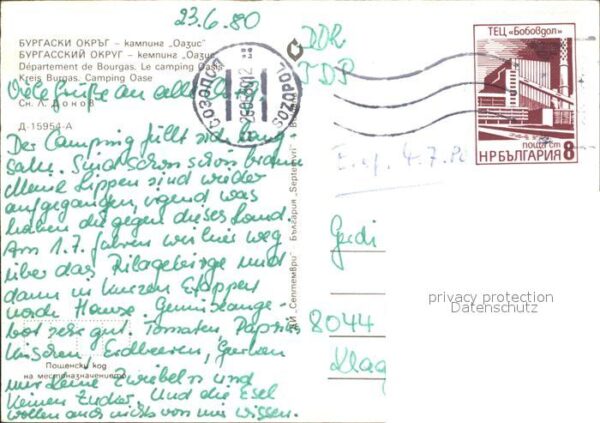 23.6.80
БУРГАСКИ ОКРЪГ – кампинг „Оазис"
БУРГАССКИЙ ОКРУГ – кемпинг „Оазис"
Département de Bourgas. Le camping Oasis
Kreis Burgas. Camping Oase
Viele Grüße an alle
Сн. Л. Доков
Д-15954-А
Der Camping füllt sich lang
sam. Sind schon schön braun
Meine Lippen sind wieder
aufgegangen, irgend was
haben die gegen dieses Land.
Am 1.7. fahren wir hier weg
über das Rilagebirge und
dann in kurzen Etappen
nach Hause. Gemüseange-
bot sehr gut. Tomaten Paprika
Kirschen, Erdbeeren, Gurken
nur keine Zwiebeln und
keinen Zucker. Und die Esel
wollen auch nichts von mir wissen.
Пощенски код
на местоназначението
ДИ „Септември" България „Septemvri"
DDR
SOZOPOL
ТЕЦ „Бобовдол"
поща ст
НР БЪЛГАРИЯ 8
4.7.80
Gedi
8044
Klag
privacy protection
Datenschutz